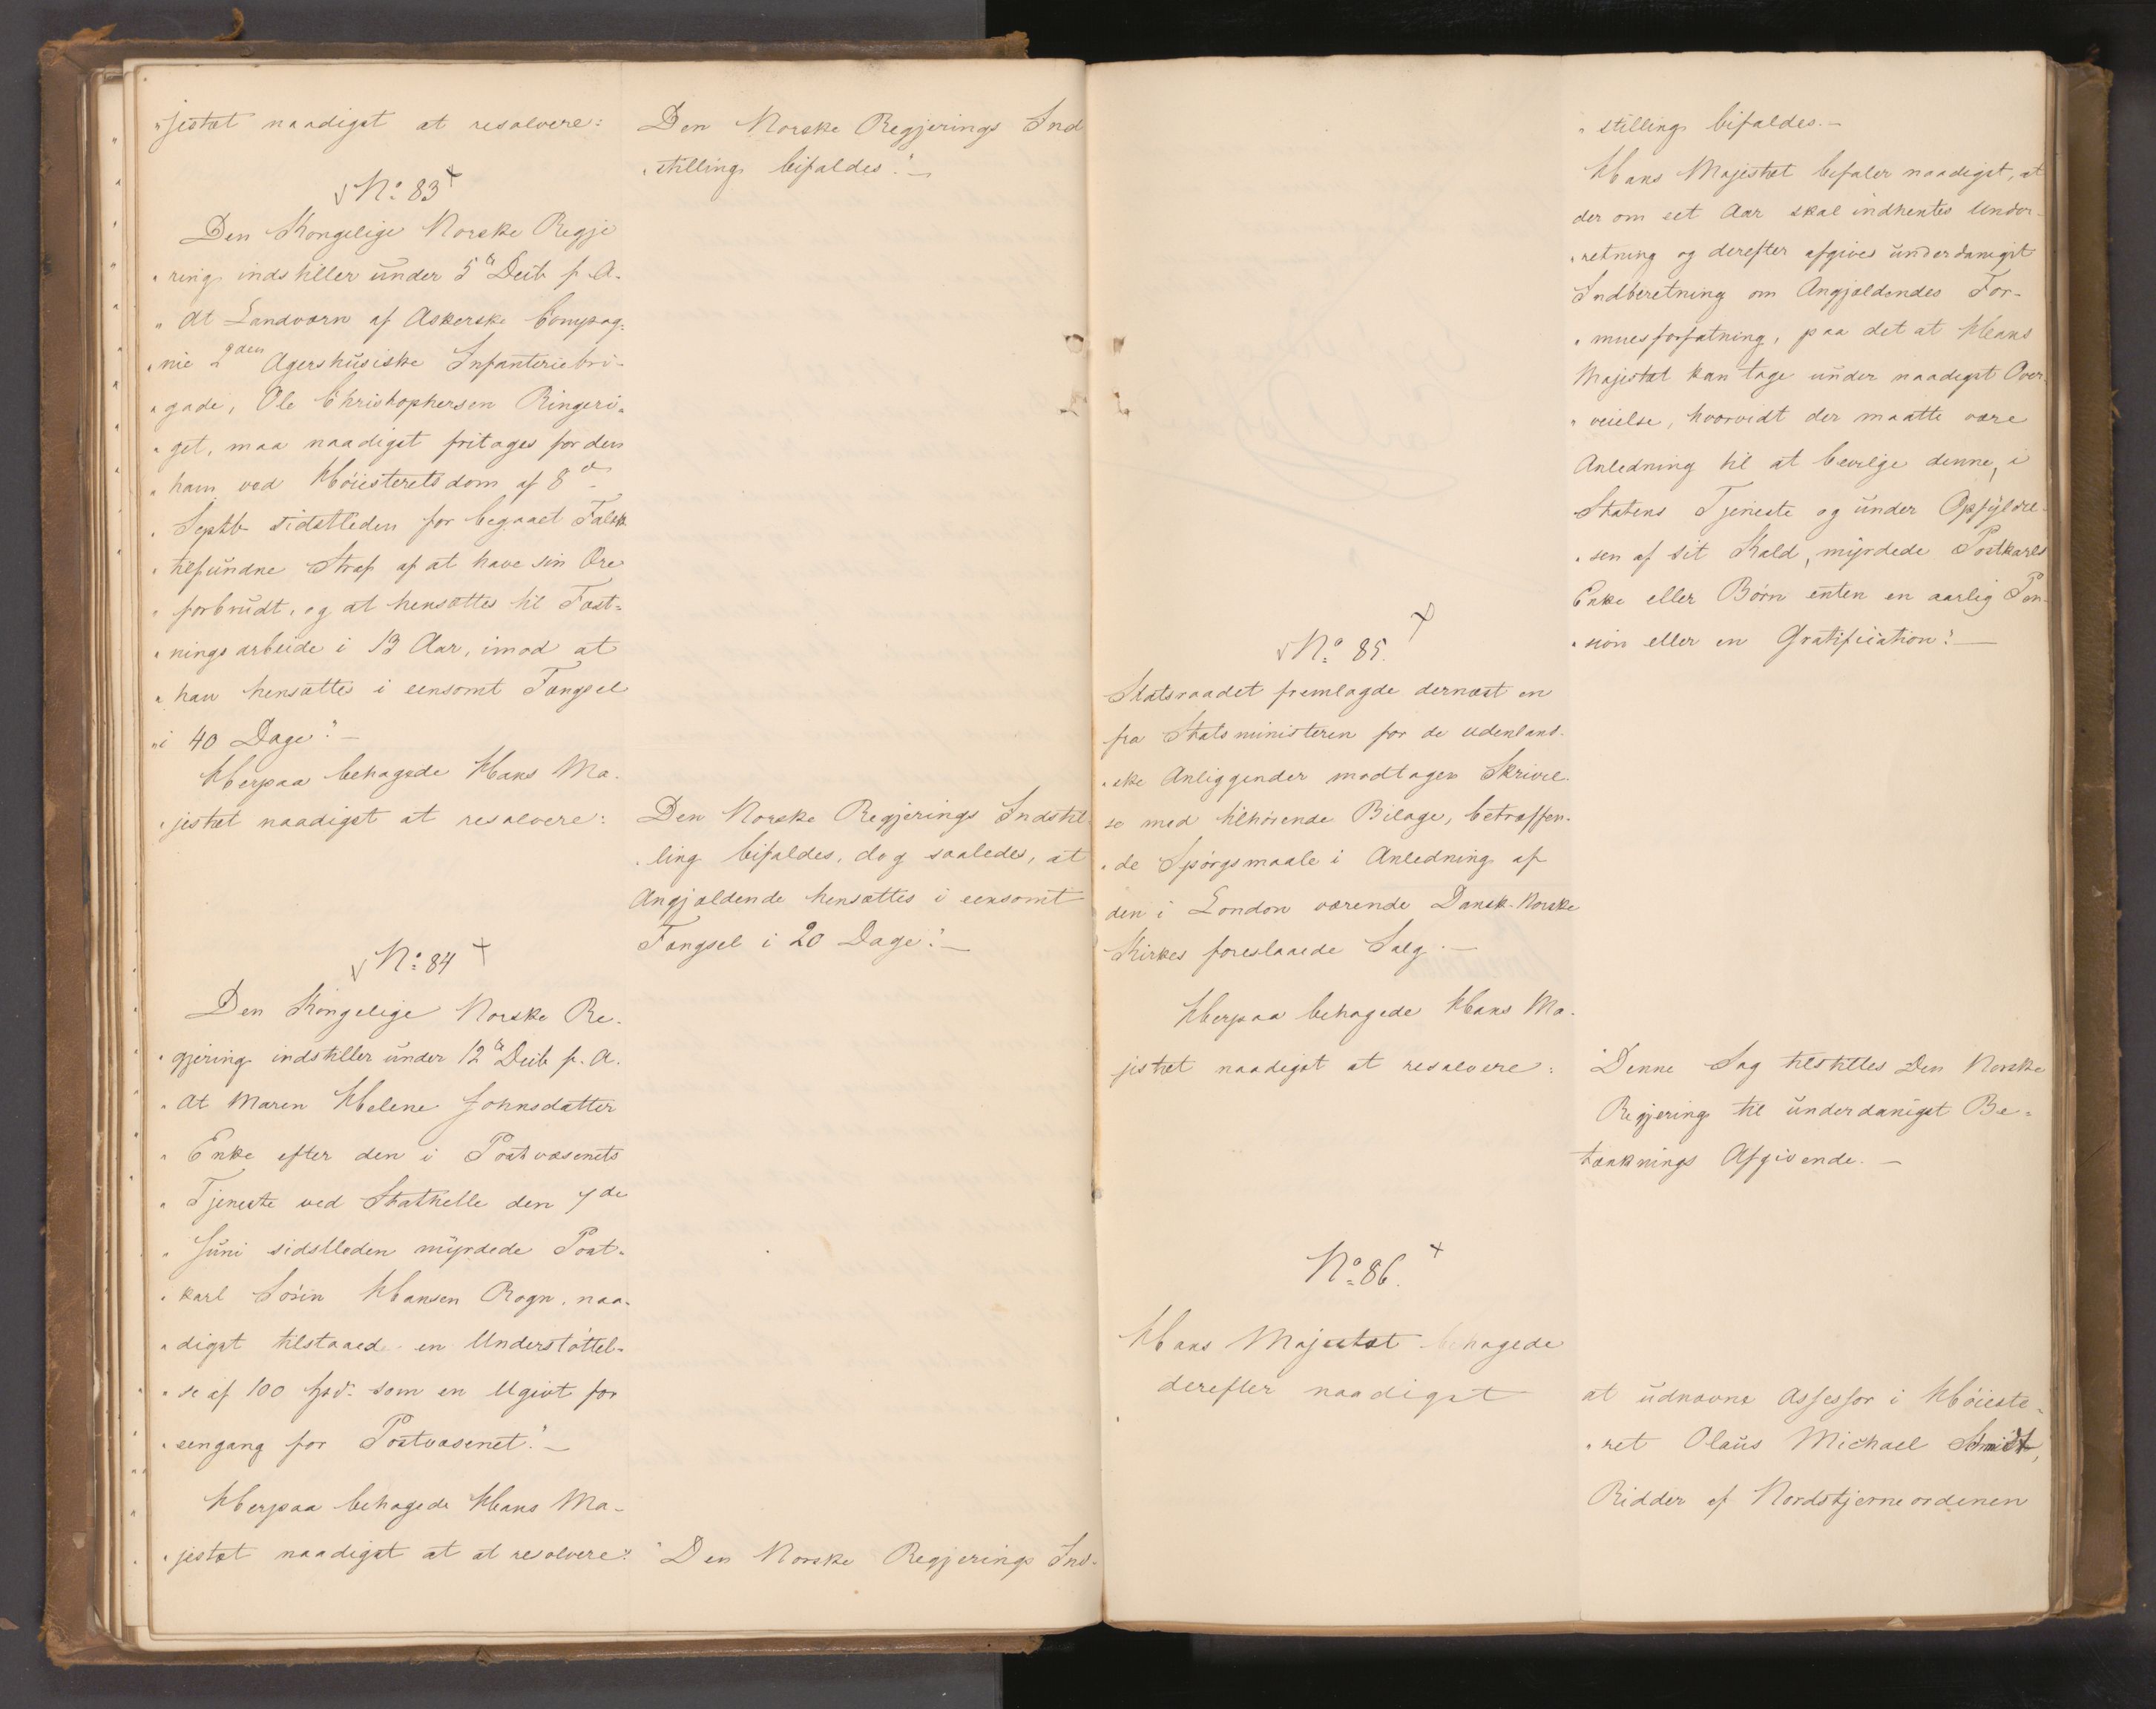 "jestæt naadigst at resolvere:
Den Norske Regjerings Ind
"stilling bifaldes."—
No: 83
Den Kongelige Norske Regje
"ring indstiller under 5te Decb f. A.
"At Landværn af Askerske Compag=
"nie 2den Agershusiske Infanteriebri-
"gade, Ole Christophersen Ringeri=
"get, maa naadigst fritages for den
"ham ved Høiesteretsdom af 8de
"Septb sidstleden for begaaet Falsk
"tilfundne Straf af at have sin Ære
"forbrudt, og at hensættes til Fæst=
"ningsarbeide i 13 Aar, imod at
"han hensættes i eensomt Fængsel
"i 40 Dage".—
Herpaa behagede Hans Ma-
"jestæt naadigst at resolvere:
Den Norske Regjerings Indstil
"ling bifaldes, dog saaledes, at
Angjældende hensættes i eensomt
Fængsel i 20 Dage".—
No: 84
Den Kongelige Norske Re-
"gjering indstiller under 12te Decb f. A.
"At Maren Helene Johnsdatter
"Enke efter den i Postvæsenets
"Tjeneste ved Stathelle den 7de
"Juni sidstleden myrdede Post-
"karl Sørin Hansen Rogn, naa-
"digst tilstaaed en Understøttel-
"se af 100 Spd. som en Ugivt for
"eengang for Postvæsenet."—
Herpaa behagede Hans Ma-
"jestæt naadigst at at resolvere:
"Den Norske Regjerings Ind-
"stilling bifaldes.—
Hans Majestæt befaler naadigst, at
der om eet Aar skal indhentes Under-
"retning og derefter afgives underdanigst
Indberetning om Angjældendes For-
"muesforfatning, paa det at Hans
Majestæt kan tage under naadigst Over-
"veielse, hvorvidt der maatte være
Anledning til at bevilge denne, i
Statens Tjeneste og under Opfyldel-
"sen af sit Kald, myrdede Postkarls
Enke eller Børn enten en aarlig Pen-
"sion eller en Gratification".—
No: 85.
Statsraadet fremlagde dernæst en
fra Statsministeren for de udenland-
"ske Anliggender modtagen Skrivel-
se med tilhørende Bilage, betræffen-
"de Spørgsmaale i Anledning af
den i London værende Dansk-Norske
Kirkes foreslaaede Salg.—
Herpaa behagede Hans Ma-
jestæt naadigst at resolvere:
"Denne Sag tilstilles Den Norske
Regjering til underdanigst Be-
tænknings Afgivende.—
No: 86.
Hans Majestæt behagede
derefter naadigst
at udnævne Assessor i Høieste-
"ret Olaus Michael Schmidt,
Ridder af Nordstjerneordenen